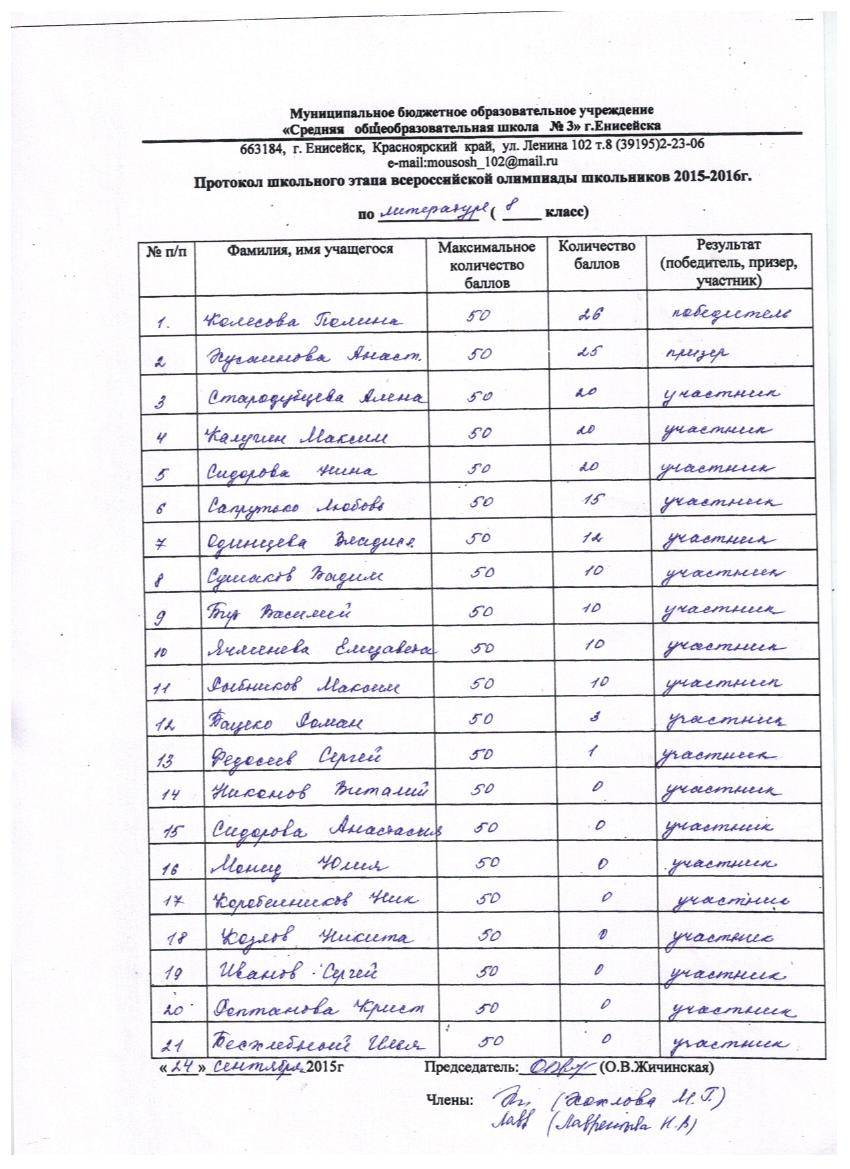 Муниципальное бюджетное образовательное учреждение
«Средняя общеобразовательная школа № 3» г.Енисейска
663184, г. Енисейск, Красноярский край, ул. Ленина 102 т.8 (39195)2-23-06
e-mail:mousosh_102@mail.ru
Протокол школьного этапа всероссийской олимпиады школьников 2015-2016г.
по литературе ( 8 класс)
№ п/п Фамилия, имя учащегося Максимальное количество баллов Количество баллов Результат (победитель, призер, участник)
1. Колесова Полина 50 26 победитель
2 Хусаинова Анаст. 50 25 призер
3 Стародубцева Алена 50 20 участник
4 Калугин Максим 50 20 участник
5 Сидорова Нина 50 20 участник
6 Сапрутько Любовь 50 15 участник
7 Одинцева 50 12 участник
8 Сушаков Вадим 50 10 участник
9 Василий 50 10 участник
10 Ячменева Елизавета 50 10 участник
11 Рыбников Максим 50 10 участник
12 Бацеко Роман 50 3 участник
13 Федосеев Сергей 50 1 участник
14 Никонов Виталий 50 0 участник
15 Сидорова Анастасия 50 0 участник
16 Юлия 50 0 участник
17 Коробейников Ник 50 0 участник
18 Козлов Никита 50 0 участник
19 Иванов Сергей 50 0 участник
20 Крист 50 0 участник
21 Бесхлебный Илья 50 0 участник
«24» сентября 2015г Председатель: (О.В.Жичинская)
Члены: (Хохлова М.Г.)
Лавр (Лаврентьева Н.А)